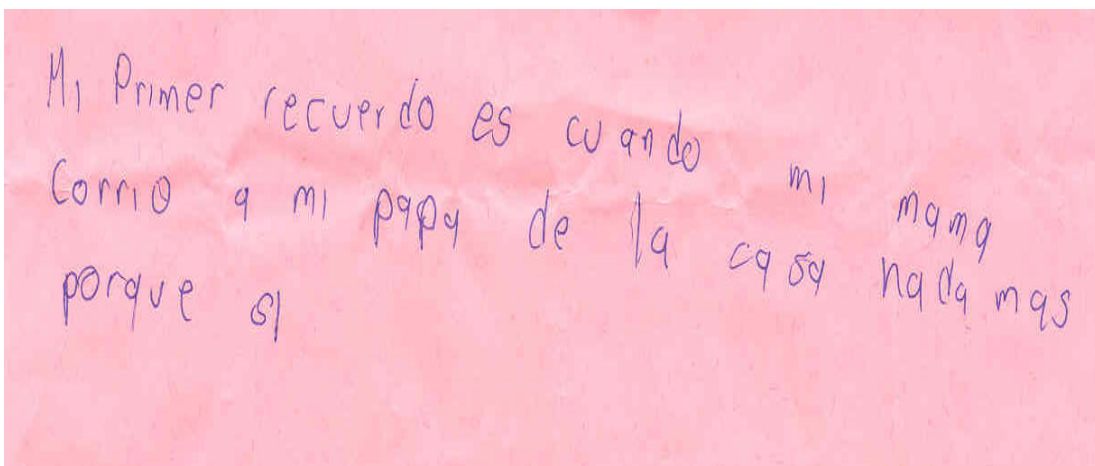 Mi Primer recuerdo es cuando mi mama
Corrio a mi papa de la casa nada mas
porque si